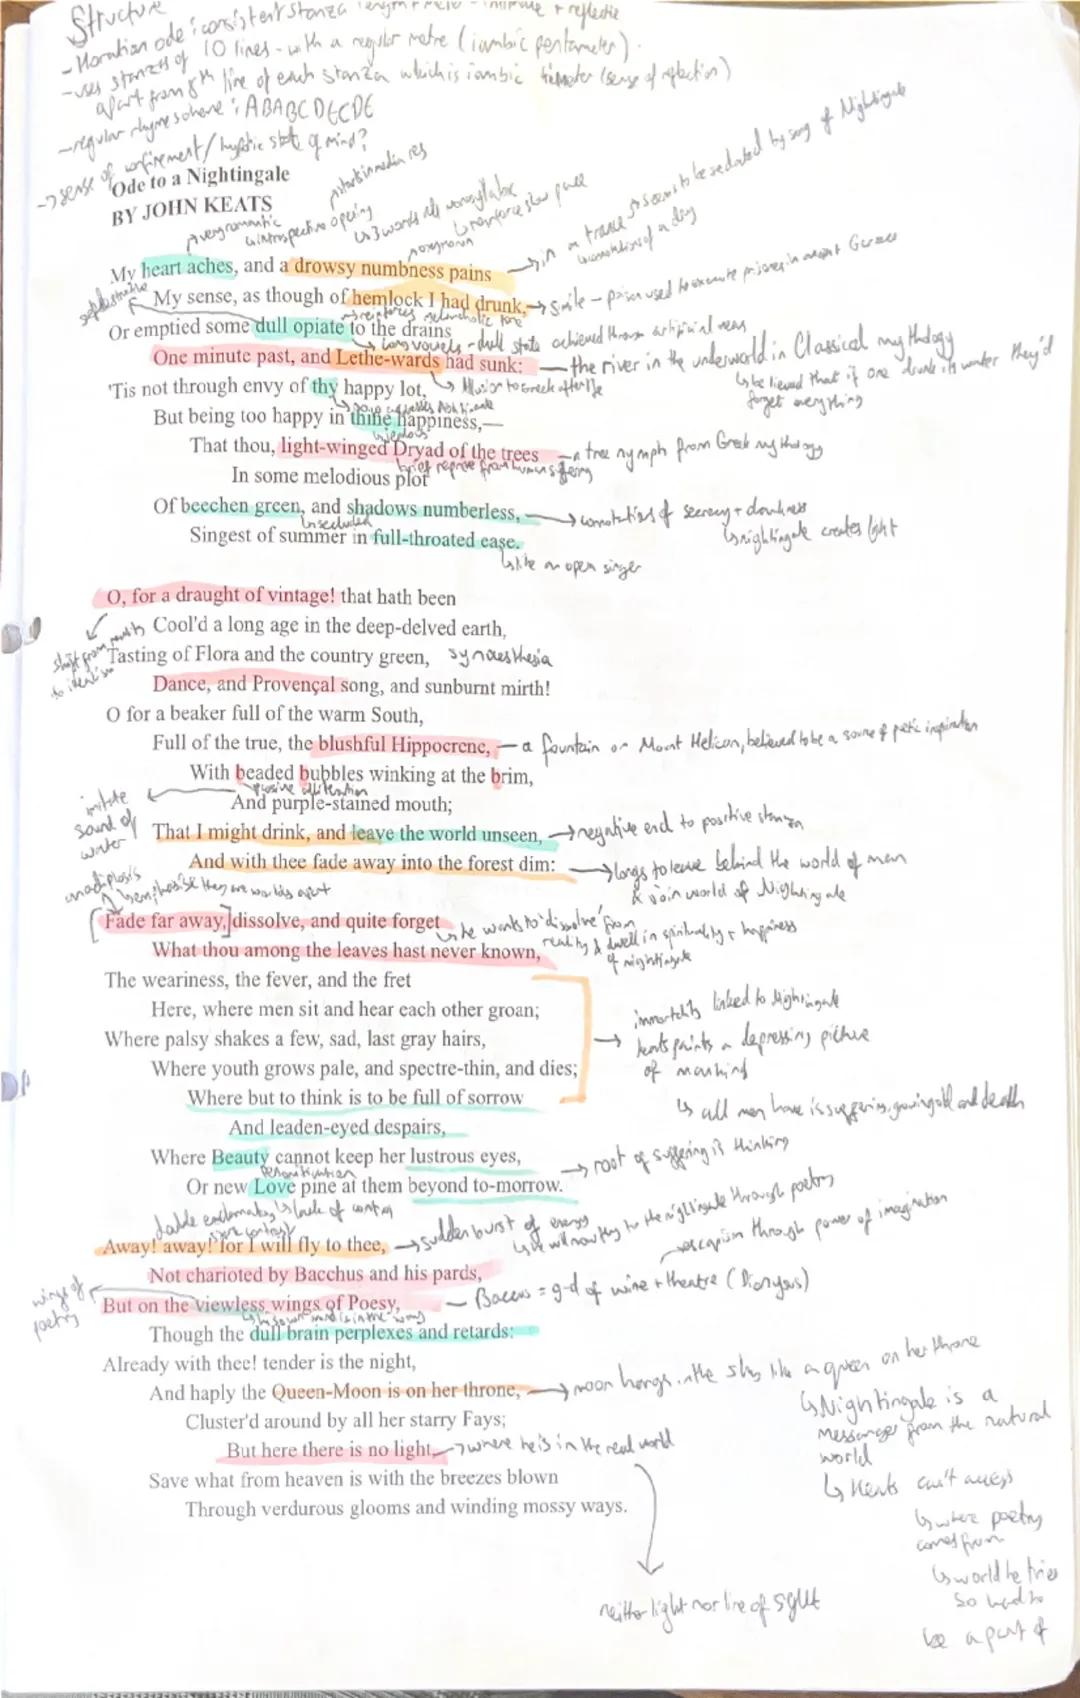 Structure
- Horatian ode : consistent stanza length + metre - intimate + reflective
- uses stanzas of 10 lines - with a regular metre (iambic pentameter).
apart from 8th line of each stanza which is iambic trimeter (sense of reflection)
- regular rhyme scheme : ABABCDECDE
-> sense of confinement / hypnotic state of mind?
Ode to a Nightingale
BY JOHN KEATS
start in media res
very romantic
introspective opening
3 words all monosyllabic
reinforce slow pace
oxymoron
in a trance
seems to be sedated by song of Nightingale
connotations of a drug
My heart aches, and a drowsy numbness pains
My sense, as though of hemlock I had drunk,
simile - poison used to execute prisoners in ancient Greece
reinforces melancholic tone
Or emptied some dull opiate to the drains
long vowels - dull state achieved through artificial means
One minute past, and Lethe-wards had sunk:
the river in the underworld in Classical mythology
believed that if one drunk its water they'd forget everything
'Tis not through envy of thy happy lot,
Allusion to Greek afterlife
But being too happy in thine happiness,—
jealous
That thou, light-winged Dryad of the trees
a tree nymph from Greek mythology
brief reprieve from human suffering
In some melodious plot
Of beechen green, and shadows numberless,
connotations of secrecy + darkness
nightingale creates light
secluded
Singest of summer in full-throated ease.
like an open singer
O, for a draught of vintage! that hath been
Cool'd a long age in the deep-delved earth,
Tasting of Flora and the country green,
synaesthesia
Dance, and Provençal song, and sunburnt mirth!
O for a beaker full of the warm South,
Full of the true, the blushful Hippocrene,
a fountain on Mount Helicon, believed to be a source of poetic inspiration
With beaded bubbles winking at the brim,
plosive alliteration
imitate sound of water
And purple-stained mouth;
That I might drink, and leave the world unseen,
negative end to positive stanza
And with thee fade away into the forest dim:
longs to leave behind the world of man
& join world of Nightingale
anadiplosis
emphasise they are worlds apart
Fade far away, dissolve, and quite forget
he wants to 'dissolve' from
reality & dwell in spirituality + happiness
of nightingale
What thou among the leaves hast never known,
The weariness, the fever, and the fret
Here, where men sit and hear each other groan;
immortality linked to Nightingale
Where palsy shakes a few, sad, last gray hairs,
Keats paints a depressing picture
of mankind
Where youth grows pale, and spectre-thin, and dies;
all men have is suffering, growing old and death
Where but to think is to be full of sorrow
And leaden-eyed despairs,
Where Beauty cannot keep her lustrous eyes,
root of suffering is thinking
Personification
Or new Love pine at them beyond to-morrow.
double exclamatory
lack of control
Away! away! for I will fly to thee,
sudden burst of energy
he will now fly to the nightingale through poetry
escapism through power of imagination
Not charioted by Bacchus and his pards,
Bacchus = god of wine + theatre (Dionysus)
But on the viewless wings of Poesy,
wings of poetry
his own mind is in the way
Though the dull brain perplexes and retards:
Already with thee! tender is the night,
And haply the Queen-Moon is on her throne,
moon hangs in the sky like a queen on her throne
Cluster'd around by all her starry Fays;
But here there is no light,
where he is in the real world
Save what from heaven is with the breezes blown
Through verdurous glooms and winding mossy ways.
Nightingale is a
messenger from the natural
world
Keats can't access
where poetry
comes from
world he tries
so hard to
be a part of
neither light nor line of sight